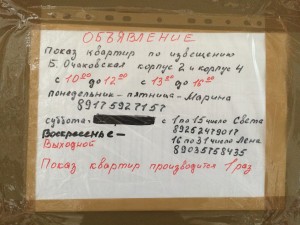 ОБЪЯВЛЕНИЕ
Показ квартир по извещению
Б. Очаковская корпус 2 и корпус 4
с 10⁰⁰ до 12⁰⁰ с 13⁰⁰ до 16⁰⁰
понедельник - пятница - Марина
89175927157
суббота - с 1 по 15 число Света
89252479017
Воскресенье -
Выходной
16 по 31 число Лена
89035758435
Показ квартир производится 1 раз